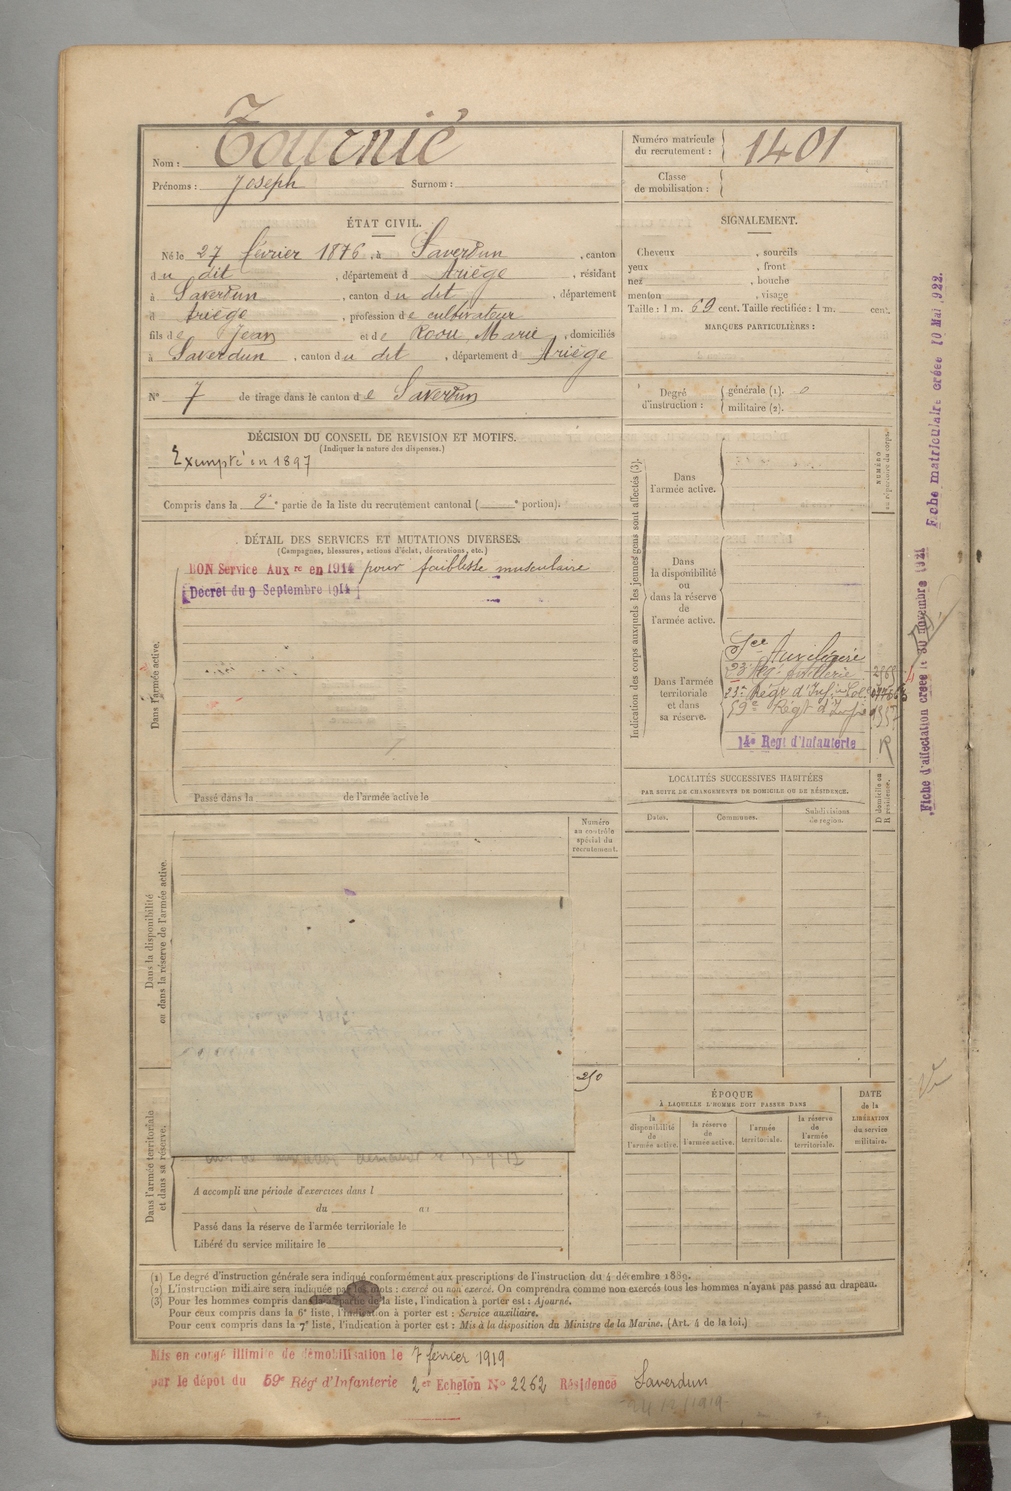 Nom : Tournié
Prénoms : Joseph Surnom :
Numéro matricule du recrutement : 1401
Classe de mobilisation :
ÉTAT CIVIL.
Né le 27 février 1876, à Saverdun, canton
du dit, département d Ariège, résidant
à Saverdun, canton du dit, département
d Ariège, profession de cultivateur
fils de Jean et de Roou, Marie, domiciliés
à Saverdun, canton du dit, département d Ariège
N° 7 de tirage dans le canton de Saverdun
SIGNALEMENT.
Cheveux , sourcils
yeux , front
nez , bouche
menton , visage
Taille : 1 m. 69 cent. Taille rectifiée : 1 m. cent.
MARQUES PARTICULIÈRES :
Degré d'instruction : générale (1). 0
militaire (2).
DÉCISION DU CONSEIL DE REVISION ET MOTIFS.
(Indiquer la nature des dispenses.)
Exempté en 1897
Compris dans la 2e partie de la liste du recrutement cantonal ( e portion).
DÉTAIL DES SERVICES ET MUTATIONS DIVERSES.
(Campagnes, blessures, actions d'éclat, décorations, etc.)
BON Service Auxre en 1914 pour faiblesse musculaire
Décret du 9 Septembre 1914
Dans l'armée active.
Passé dans la de l'armée active le
Indication des corps auxquels les jeunes gens sont affectés (3).
NUMÉRO au répertoire du corps.
Dans l'armée active.
Dans la disponibilité ou dans la réserve de l'armée active.
Dans l'armée territoriale et dans sa réserve.
Sce Auxiliaire
23e Rég. Artillerie
23e Régt d'Inf. Col.
59e Régt d'Infie
14e Regt d'Infanterie R
LOCALITÉS SUCCESSIVES HABITÉES
PAR SUITE DE CHANGEMENTS DE DOMICILE OU DE RÉSIDENCE.
Dates. Communes. Subdivisions de région. D domicile ou R résidence.
Numéro au contrôle spécial du recrutement.
Dans la disponibilité ou dans la réserve de l'armée active.
250
Dans l'armée territoriale et dans sa réserve.
A accompli une période d'exercices dans l
du au
Passé dans la réserve de l'armée territoriale le
Libéré du service militaire le
ÉPOQUE
À LAQUELLE L'HOMME DOIT PASSER DANS
la disponibilité de l'armée active. la réserve de l'armée active. l'armée territoriale. la réserve de l'armée territoriale.
DATE de la LIBÉRATION du service militaire.
(1) Le degré d'instruction générale sera indiqué conformément aux prescriptions de l'instruction du 4 décembre 1889.
(2) L'instruction militaire sera indiquée par les mots : exercé ou non exercé. On comprendra comme non exercés tous les hommes n'ayant pas passé au drapeau.
(3) Pour les hommes compris dans la partie de la liste, l'indication à porter est : Ajourné.
Pour ceux compris dans la 6e liste, l'indication à porter est : Service auxiliaire.
Pour ceux compris dans la 7e liste, l'indication à porter est : Mis à la disposition du Ministre de la Marine. (Art. 4 de la loi.)
Mis en congé illimité de démobilisation le 7 février 1919
par le dépôt du 59e Régt d'Infanterie 2e Echelon N° 2262 Résidence Saverdun
Fiche d'affectation créée le 30 novembre 1921
Fiche matriculaire créée 10 Mai 1922.